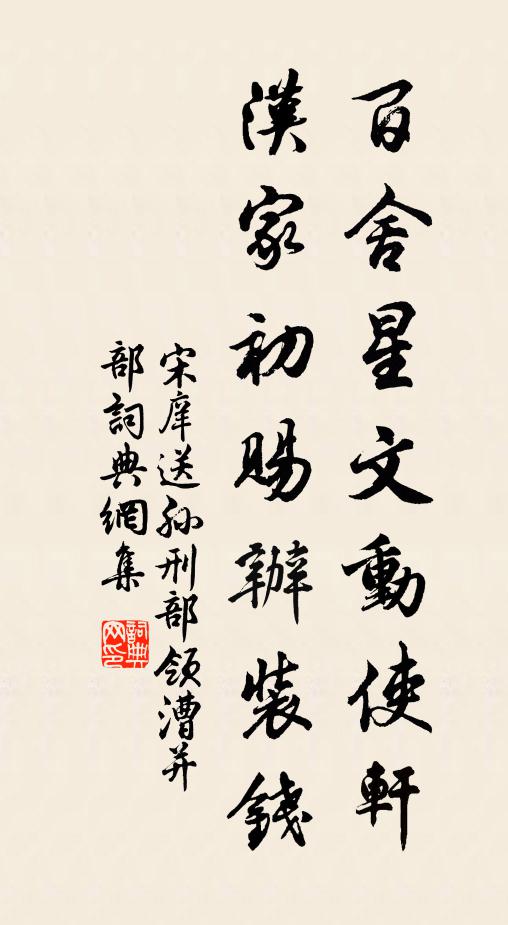 百舍星文動使軒
漢家初賜辦裝錢
宋庠送孙刑部領漕并
部詞典網集
詞典网印